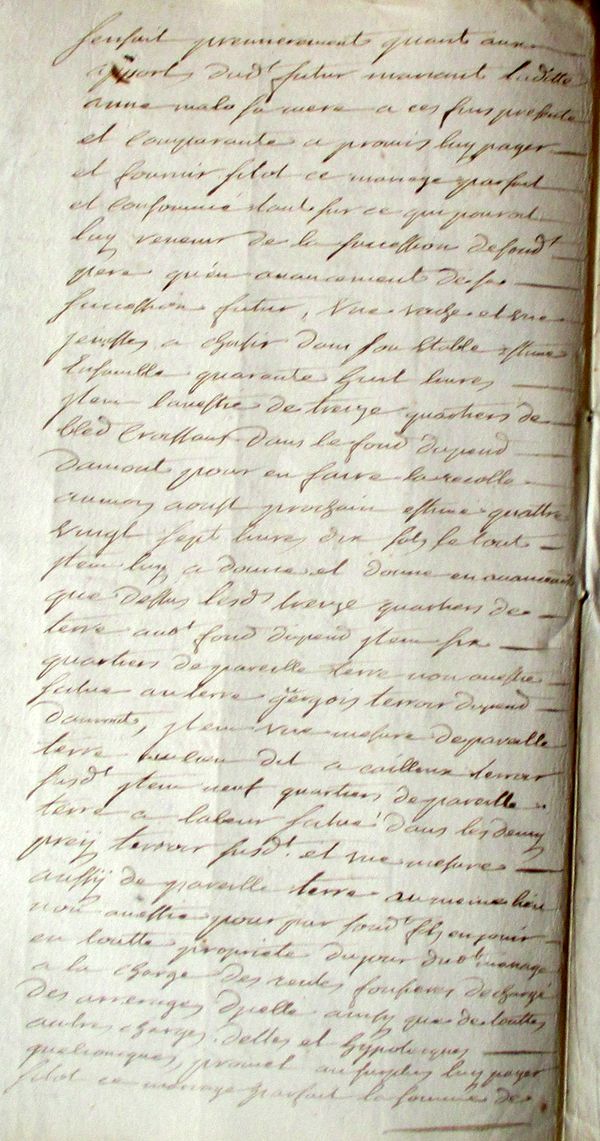 sensuit premierement quant aux
apports dud.t futur mariant laditte
anne malo sa mere a ces fins presente
et comparante a promis luy payer
et fournir sitot ce mariage parfait
et consommé tant sur ce qui pouroit
luy revenir de la succession de sond.t
pere qu'en avancement de sa
succession futur, une vache et une
a choisir dans son Etable estimé
Ensemble quarante huit livres
jtem lavestie de treize quartiers de
bled Croissant dans le fond dupend
damont pour en faire la recolte
au mois aoust prochain estimé quattre
vingt sept livres dix sols le tout
jtem luy a donné et donne en avancement
que dessus lesd.s treize quartiers de
terre aud.t fond dupend jtem six
quartiers de pareille terre non avestie
scitué au terroir dupend
damont, jtem une mesure de pareille
terre au lieu dit a cailleux terroir
susd.t jtem neuf quartiers de pareille
terre a labeur scitué dans les
prez terroir susd.t et une mesure
aussy de pareille terre au meme lieu
non avestie pour par sond.t fils en jouir
en toutte propriété du jour dud.t mariage
a la charge des rentes foncieres déchargé
des arrerages dycelle ainsy que de touttes
autres charges, dettes et hypoteques
quelconques, promet au surplus luy payer
sitot ce mariage parfait la somme de